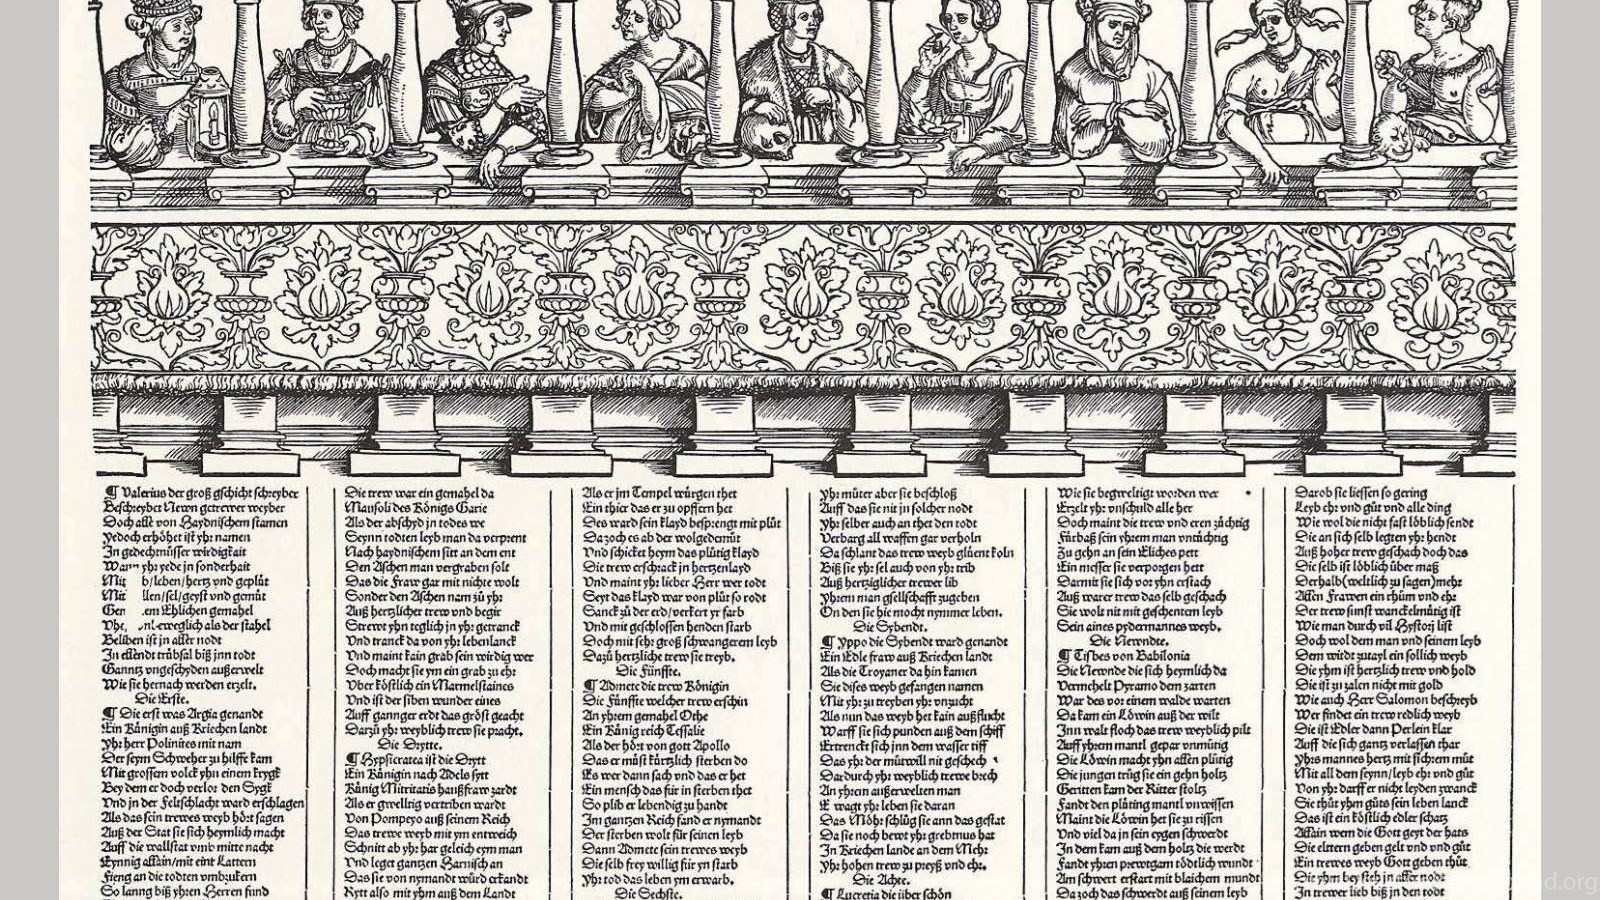 ¶ Valerius der groß gschicht schreyber
Beschreybet Newn getrewer weyber
Doch alle von Haydnischem stamen
Yedoch erhöhet ist yhr namen
In gedechtnüsser wirdigkait
yhr yede jn sonderhait
Mit b/leben/hertz vnd geplüt
Mit llen/sel/geyst vnd gemüt
Ehlichen gemahel
als der stahel
Beliben ist jn aller nodt
In ellendt trübsal biß jnn todt
Gantz vngeschyden außerwelt
Wie sie hernach werden erzelt.
Die Erste.
¶ Die erst was Argia genandt
Ein Künigin auß Kriechen landt
Yhr herr Polinites mit nam
Der seym Schweher zu hilffe kam
Mit grossem volck yhn einem krygk
Bey dem er doch verlor den Sygk
Vnd in der Feltschlacht ward erschlagen
Als das sein trewes weyb hört sagen
Auß der Stat sie sich heymlich macht
Auff die wallstat vmb mitte nacht
Eynnig allain/mit eint Lattern
Fieng an die todten vmbzukern
So lanng biß yhren Herren fund
Die trew war ein gemahel da
Mausoli des Königs Carie
Als der abschyd jn todes we
Seynn todten leyb man da verprent
Nach haydnischem sitt an dem ent
Den Aschen man vergraben solt
Das die Fraw gar mit nichte wolt
Sonder den Aschen nam zů yhr
Auß hertzlicher trew vnd begir
Strewt yhn teglich jn yhr getranck
Vnd tranck da von yhr lebenlanck
Vnd maint kain grab sein wirdig wer
Doch macht sie ym ein grab zu ehr
Vber köstlich ein Marmelstaines
Vnd ist der siben wunder eines
Auff gannger erdt das gröst geacht
Darzů yhr weyblich trew sie pracht.
Die Drytte.
¶ Hypsicratea ist die Drytt
Ein Künigin nach Adels sytt
Künig Mitritatis haußfraw zardt
Als er gwelltig vertriben wardt
Von Pompeyo auß seinem Reich
Das trewe weyb mit ym entweich
Schnit ab yhr har geleich eym man
Vnd leget gantzen Harnisch an
Das sie von nymandt würd erkandt
Rytt also mit yhm auß dem Landt
Als er jm Tempel würgen thet
Ein thier das er zu opffern het
Des ward sein klayd besprengt mit plüt
Da zoch es ab der wolgedemüt
Vnd schicket heym das plütig klayd
Die trew erschrack jn hertzenlayd
Vnd maint yhr lieber Herr wer todt
Seyt das klayd war von plüt so rodt
Sanck zů der erd/verkert yr farb
Vnd mit geschlossen henden starb
Doch mit sehr groß schwangerem leyb
Dazů hertzliche trew sie treyb.
Die Fünffte.
¶ Admete die trew Königin
Die Fünffte welcher trew erschin
An yhrem gemahel Othe
Ein Künig reich Tessalie
Als der hört von gott Apollo
Das er müst kürtzlich sterben do
Es wer dann sach vnd das er het
Ein mensch das für in sterben thet
So plib er lebendig zu handt
Im gantzen Reich fand er nymandt
Der sterben wolt für seinen leyb
Dann Admete sein trewes weyb
Die selb frey willig für yn starb
Yhr tod das leben ym erwarb.
Die Sechste.
yhr müter aber sie beschloß
Auff das sie nit jn solcher nodt
yhr selber auch an thet den todt
Verbarg all waffen gar verholn
Da schlant das trew weyb glüent koln
Biß sie yhr sel auch von yhr trib
Auß hertziglicher trewer lib
yhrem man gsellschafft zugeben
On den sie hie mocht nymmer leben.
Die Sybendt.
¶ Yppo die Sybendt ward genandt
Ein Edle fraw auß Kriechen landt
Als die Troyaner da hin kamen
Sie dises weyb gefangen namen
Mit yhr zu treyben yhr vnzucht
Als nun das weyb het kain außflucht
Warff sie sich punden auß dem schiff
Ertrenckt sich jnn dem wasser tiff
Das yhr der mütwill nit geschech
Dardurch yhr weyblich trewe brech
An yhrem außerwelten man
E wagt yhr leben sie daran
Das Möhr schlüg sie ann das gestat
Da sie noch bewt yhr grebtnus hat
In Kriechen lande an dem Mehr
Yhr hohen trew zu preyß vnd ehr.
Die Achte.
¶ Lucrecia die über schön
Wie sie begweltigt worden wer
Erzelt yhr vnschuld alle her
Doch maint die trew vnd eren züchtig
Fürbaß sein yhrem man vntüchtig
Zu gehn an sein Eliches pett
Ein messer sie verporgen hett
Darmit sie sich vor yhn erstach
Auß warer trew das selb geschach
Sie wolt nit mit geschentem leyb
Sein aines pydermannes weyb.
Die Newndte.
¶ Tisbes von Babilonia
Die Newnde die sich heymlich da
Vermehelt Pyramo dem zarten
War des vor einem walde warten
Da kam ein Löwin auß der wilt
Inn walt floch das trew weyblich pilt
Auff yhrem mantl gepar vnmütig
Die Löwin macht yhn allen plütig
Die jungen trüg sie ein gehn holtz
Geritten kam der Ritter stoltz
Fandt den plüting mantl vnwissen
Maint die Löwin het sie zu rissen
Vnd viel da jn sein eygen schwerdt
In dem kam auß dem holtz die werdt
Fandt yhren prewtgam tödtlich wundt
Am schwert erstart mit blaichem mundt
Da zoch das schwerdt auß seinem leyb
Darob sie liessen so gering
Leyb ehr vnd güt vnd alle ding
Wie wol die nicht fast löblich sendt
Die an sich selb legten yhr hendt
Auß hoher trew geschach doch das
Die selb ist löblich über maß
Derhalb(weltlich zu sagen)mehr
Allen Frawen ein thům vnd ehr
Der trew sunst wanckelmütig ist
Wie man durch vil Hystorj list
Doch wol dem man vnd seinem leyb
Dem wirdt zutayl ein sollich weyb
Die yhm ist hertzlich trew vnd hold
Die ist zu zalen nicht mit gold
Wie auch Herr Salomon beschreyb
Wer findet ein trew redlich weyb
Die ist Edler dann Perlein klar
Auff die sich gantz verlassen thar
Yhrs mannes hertz mit sichrem müt
Mit all dem synn/leyb ehr vnd güt
Von yhr darff er nicht leyden zwanck
Sie thüt yhm güts sein leben lanck
Das ist ein köstlich edler schatz
Allain wem die Gott geyt der hats
Die eltern geben gelt vnd vnd güt
Ein trewes weyb Gott geben thüt
Die yhm bey steh jn aller nodt
In trewer lieb biß jn den todt